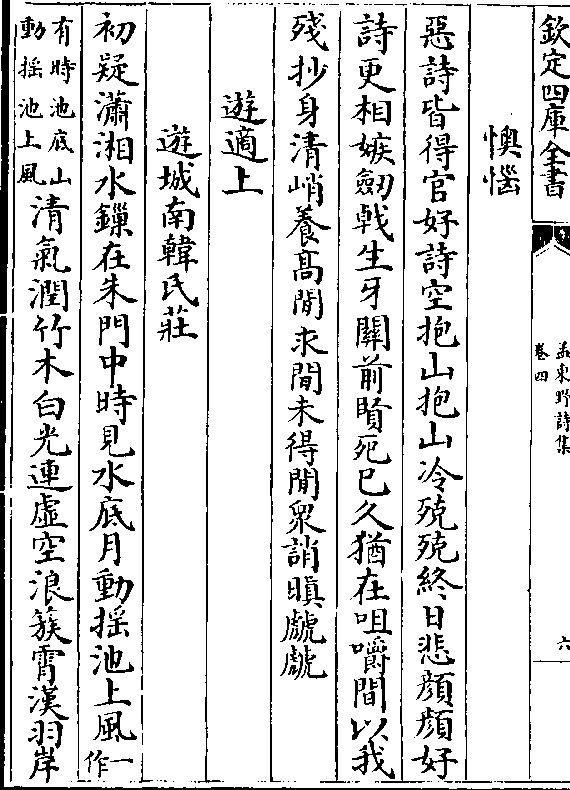 欽定四庫全書
孟東野詩集
卷四
六
懊惱
惡詩皆得官好詩空抱山抱山冷殑殑終日悲顔顔好
詩更相嫉劒戟生牙關前賢死已久猶在咀嚼間以我
殘抄身清峭養髙閒求閒未得閒衆誚瞋虤虤
遊適上
遊城南韓氏莊
初疑瀟湘水鏁在朱門中時見水底月動揺池上風一作
有時池底山
動揺池上風
清氣潤竹木白光連虛空浪簇霄漢羽岸